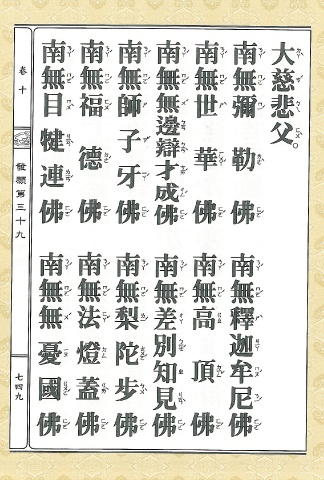 大慈悲父。
南無彌勒佛 南無釋迦牟尼佛
南無世華佛 南無高頂佛
南無無邊辯才成佛 南無差別知見佛
南無師子牙佛 南無梨陀步佛
南無福德佛 南無法燈蓋佛
南無目犍連佛 南無無憂國佛
卷十 發願第三十九 七四九